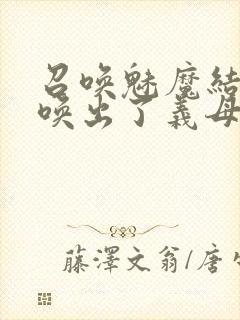 召喚魅魔結
喚出了義母
藤澤文翁/唐